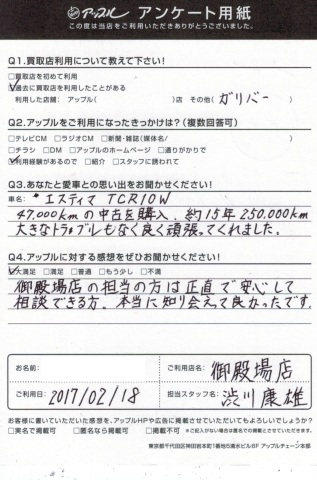 アップル アンケート用紙
この度は当店をご利用いただきありがとうございました。
Q1.買取店利用について教えて下さい!
□買取店を初めて利用
☑過去に買取店を利用したことがある
利用した店舗: アップル( )店 その他( ガリバー )
Q2.アップルをご利用になったきっかけは?(複数回答可)
□テレビCM □ラジオCM □新聞・雑誌(媒体名/ )
□チラシ □DM □アップルのホームページ □通りがかりで
☑利用経験があるので □紹介 □スタッフに誘われて
Q3.あなたと愛車との思い出をお聞かせください!
車名: *エスティマ TCR10W
47,000kmの中古を購入、約15年250,000km
大きなトラブルもなく良く頑張ってくれました。
Q4.アップルに対する感想をぜひお聞かせください!
☑大満足 □満足 □普通 □もう少し □不満
御殿場店の担当の方は正直で安心して
相談できる方、本当に知り会えて良かったです。
お名前: ご利用店名: 御殿場店
ご利用日: 2017/02/18 担当スタッフ名: 渋川康雄
お客様に書いていただいた感想を、アップルHPや広告に掲載させていただいてもよろしいでしょうか?
□実名で掲載可 □匿名なら掲載可 □掲載不可 *ご記入がない場合は匿名での掲載とさせて頂きます。
東京都千代田区神田岩本町1番地5清水ビル6F アップルチェーン本部